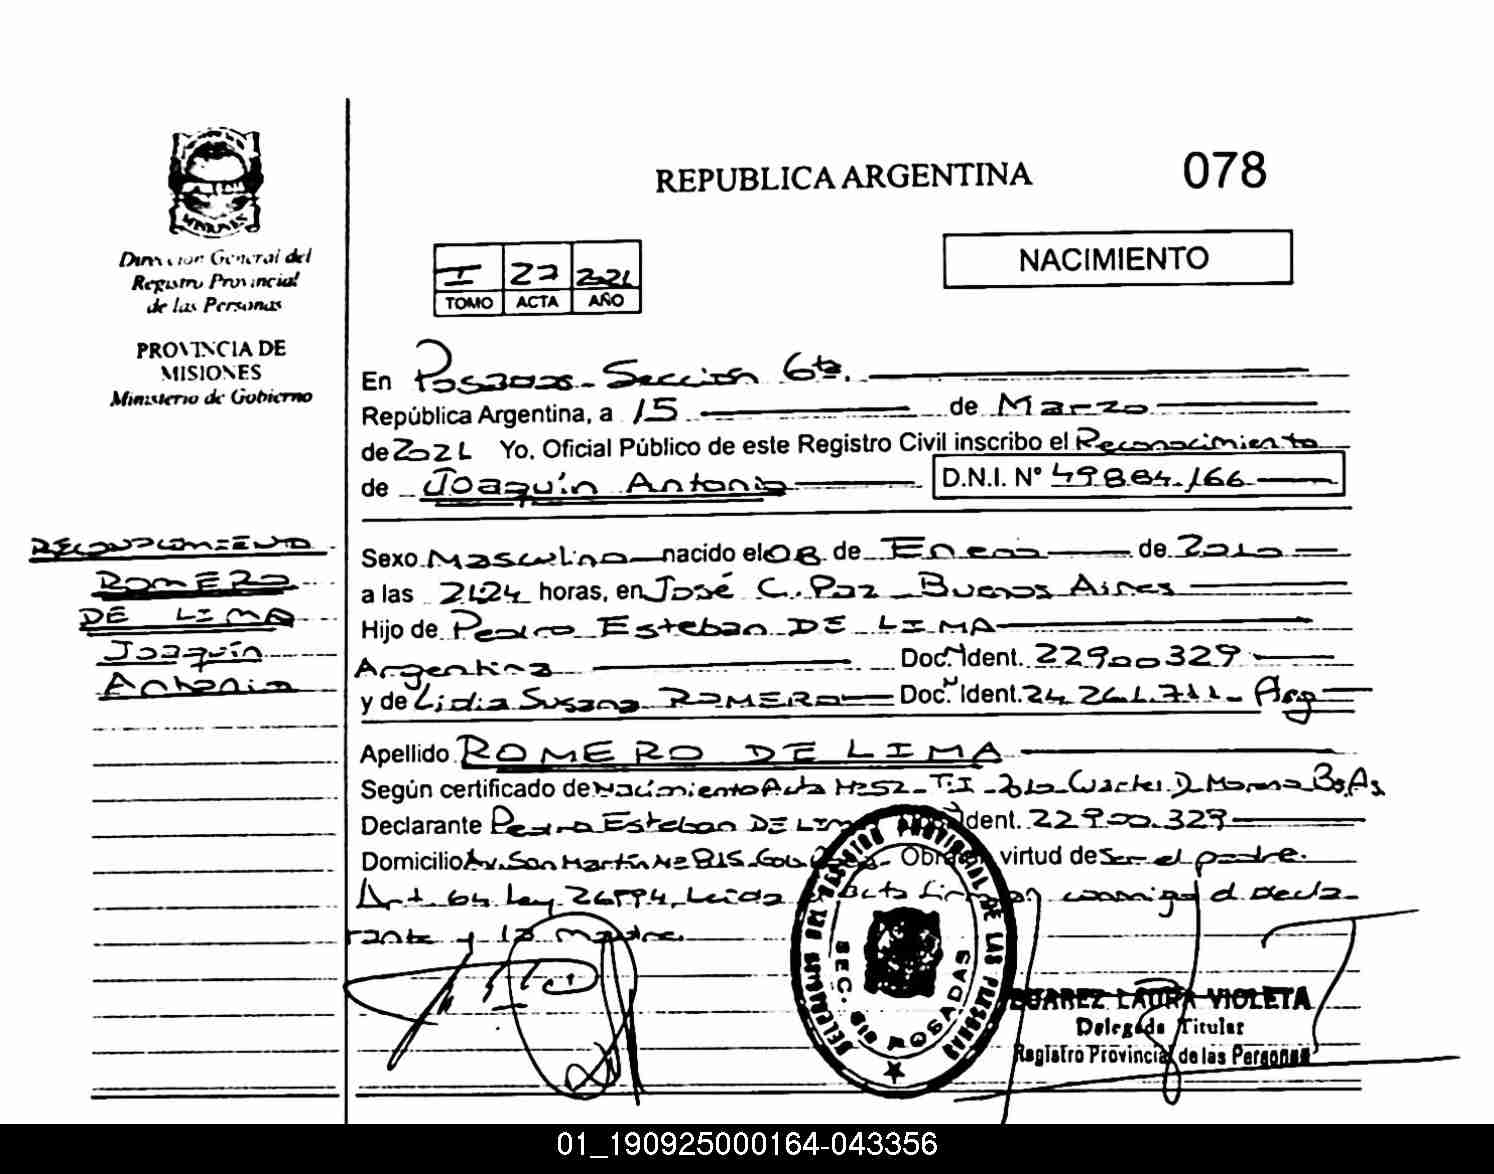 REPUBLICA ARGENTINA
078
Dirección General del
Registro Provincial
de las Personas
PROVINCIA DE
MISIONES
Ministerio de Gobierno
I 27 2021
TOMO ACTA AÑO
NACIMIENTO
En Posadas - Sección 6ta.
República Argentina, a 15 de Marzo
de 2021 Yo, Oficial Público de este Registro Civil inscribo el Reconocimiento
de Joaquín Antonio D.N.I. N° 49.884.166
RECONOCIMIENTO
ROMERO
DE LIMA
Joaquín
Antonio
Sexo Masculino nacido el 08 de Enero de 2010
a las 21:24 horas, en José C. Paz - Buenos Aires
Hijo de Pedro Esteban DE LIMA
Argentina Doc. Ident. 22900329
y de Lidia Susana ROMERO Doc. Ident. 24.261.711 - Arg
Apellido ROMERO DE LIMA
Según certificado de Nacimiento Acta Nº 52 - T: I - 2010 - D. Moreno Bs. As
Declarante Pedro Esteban DE LIMA Ident. 22900.329
Domicilio Av. San Martín Nº 815 - Obra en virtud de ser el padre.
Art. 64 Ley 26994, Leída Acta firman conmigo el decla-
rante y la madre.
DELEGACION DEL REGISTRO PROVINCIAL DE LAS PERSONAS
SEC. 6ta POSADAS
SUAREZ LAURA VIOLETA
Delegada Titular
Registro Provincial de las Personas
01_190925000164-043356